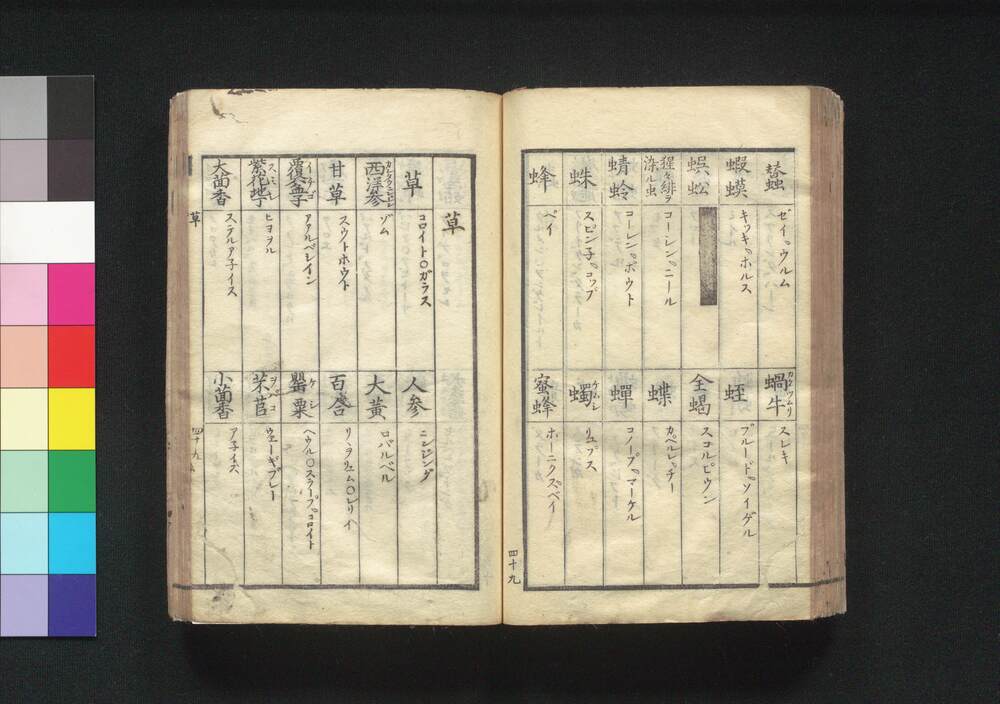 蠶
ゼイヅウルム
蝦蟇
キッキ゚ホルス
蜈蚣
猩々緋ヲ
染ル虫
コーシン゚ニール
蜻蛉
コーレン゚ボウト
蛛
スピン子゚コップ
蜂
ベイ
蝸牛
カタツムリ
スレキ
蛭
ブルード゚ソイゲル
全蝎
スコルピウン
蝶
カペルレッチー
蟬
コノープ゚マーケル
蠋
リュプス
蜜蜂
ホーニクズベイ
四十九
草
草
コロイト〇ガラス
西洋參
ゾム
甘草
スウトホウト
覆盆子
イチゴ
アアルベシイン
紫花地丁
スミレ
ヒヨヲル
大茴香
ステルア子イス
人參
ニンジング
大黄
ロバルベル
百合
リヽヲリュム〇レリイ
罌粟
ケシ
ヘウル〇スラープ゚コロイト
芣苢
ヲバコ
ウェーギブレー
小茴香
ア子イズ
草
四十九